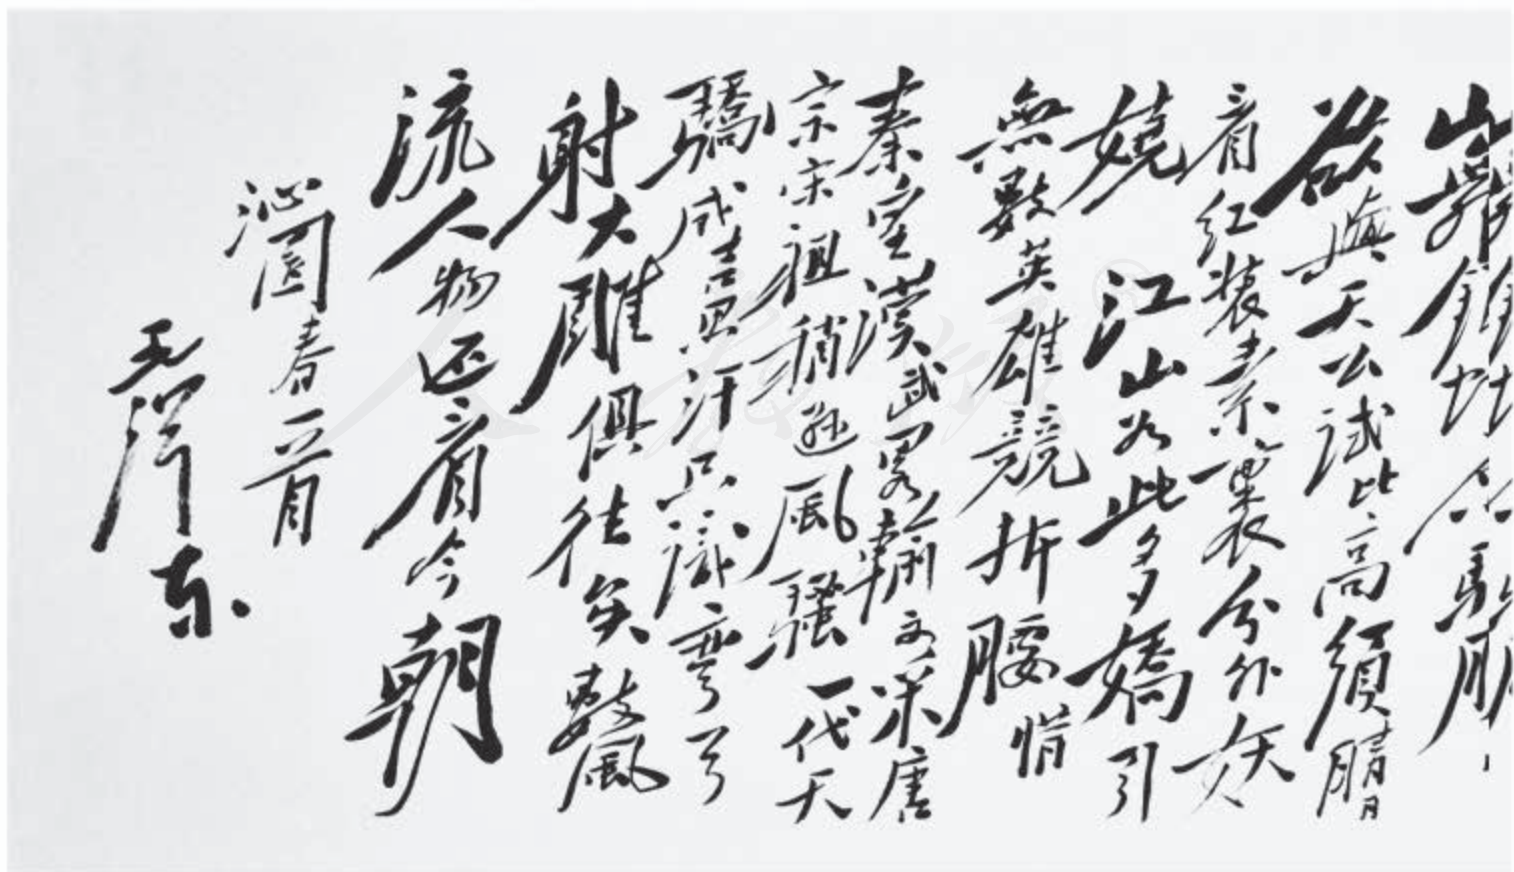 山舞銀蛇原馳臘
欲與天公試比高須晴日
看红装素裹分外妖
嬈 江山如此多嬌引
無數英雄競折腰惜
秦皇漢武略輸文采唐
宗宋祖稍遜風騷一代天
驕成吉思汗只識彎弓
射大雕俱往矣數風
流人物还看今朝
沁園春一首
毛澤东